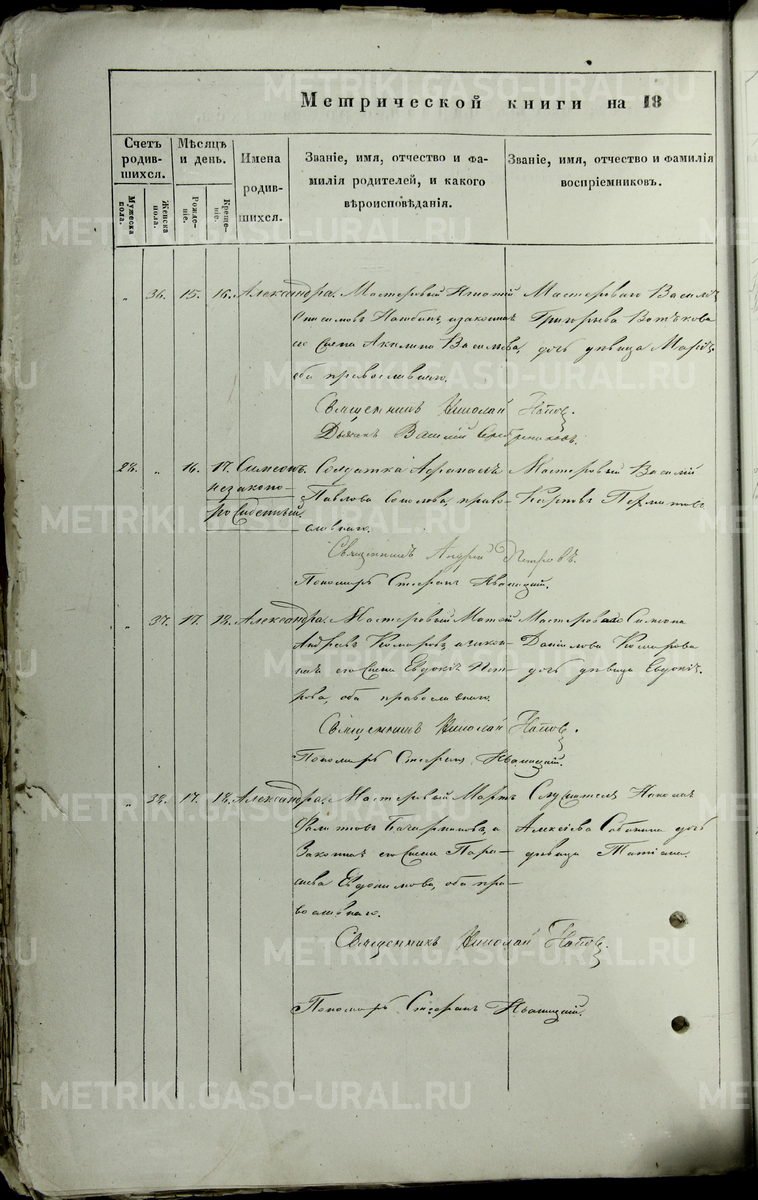 Метрической книги на 18
Счетъ родив-шихся.
Мужеска пола.
Женска пола.
Мѣсяцъ и день.
Рожде-ніе.
Креще-ніе.
Имена родив-шихся.
Званіе, имя, отчество и фа-
милія родителей, и какого
вѣроисповѣданія.
Званіе, имя, отчество и фамилія
воспріемниковъ.
„ 36. 15. 16. Александра. Мастеровый Игнатій
законная
его жена Акилина Васильева,
оба православнаго.
Мастероваго Василія
Григорьева
дочь дѣвица Марія.
Священникъ Николай Поповъ.
Дьячекъ Василій Серебренниковъ.
28. „ 16. 17. Симеонъ
незаконо-
рожденный.
Солдатка
Павлова право-
славнаго.
Мастеровый Василій
Карповъ
Священникъ Андрей Петровъ.
Пономарь Стефанъ
„ 37. 17. 18. Александра. Мастеровый Матвей
Андреевъ Комаровъ и закон-
ная его жена Евдокія Пет-
рова, оба православнаго.
Мастероваго Симеона
Данилова Комарова
дочь дѣвица Евдокія.
Священникъ Николай Поповъ.
Пономарь Стефанъ
„ 38. 17. 18. Александра. Мастеровый
и
законная его жена Пара-
скева Евдокимова, оба пра-
вославнаго.
Служителя
Алексѣева Собянина дочь
дѣвица Татіана.
Священникъ Николай Поповъ.
Пономарь Стефанъ
METRIKI.GASO-URAL.RU